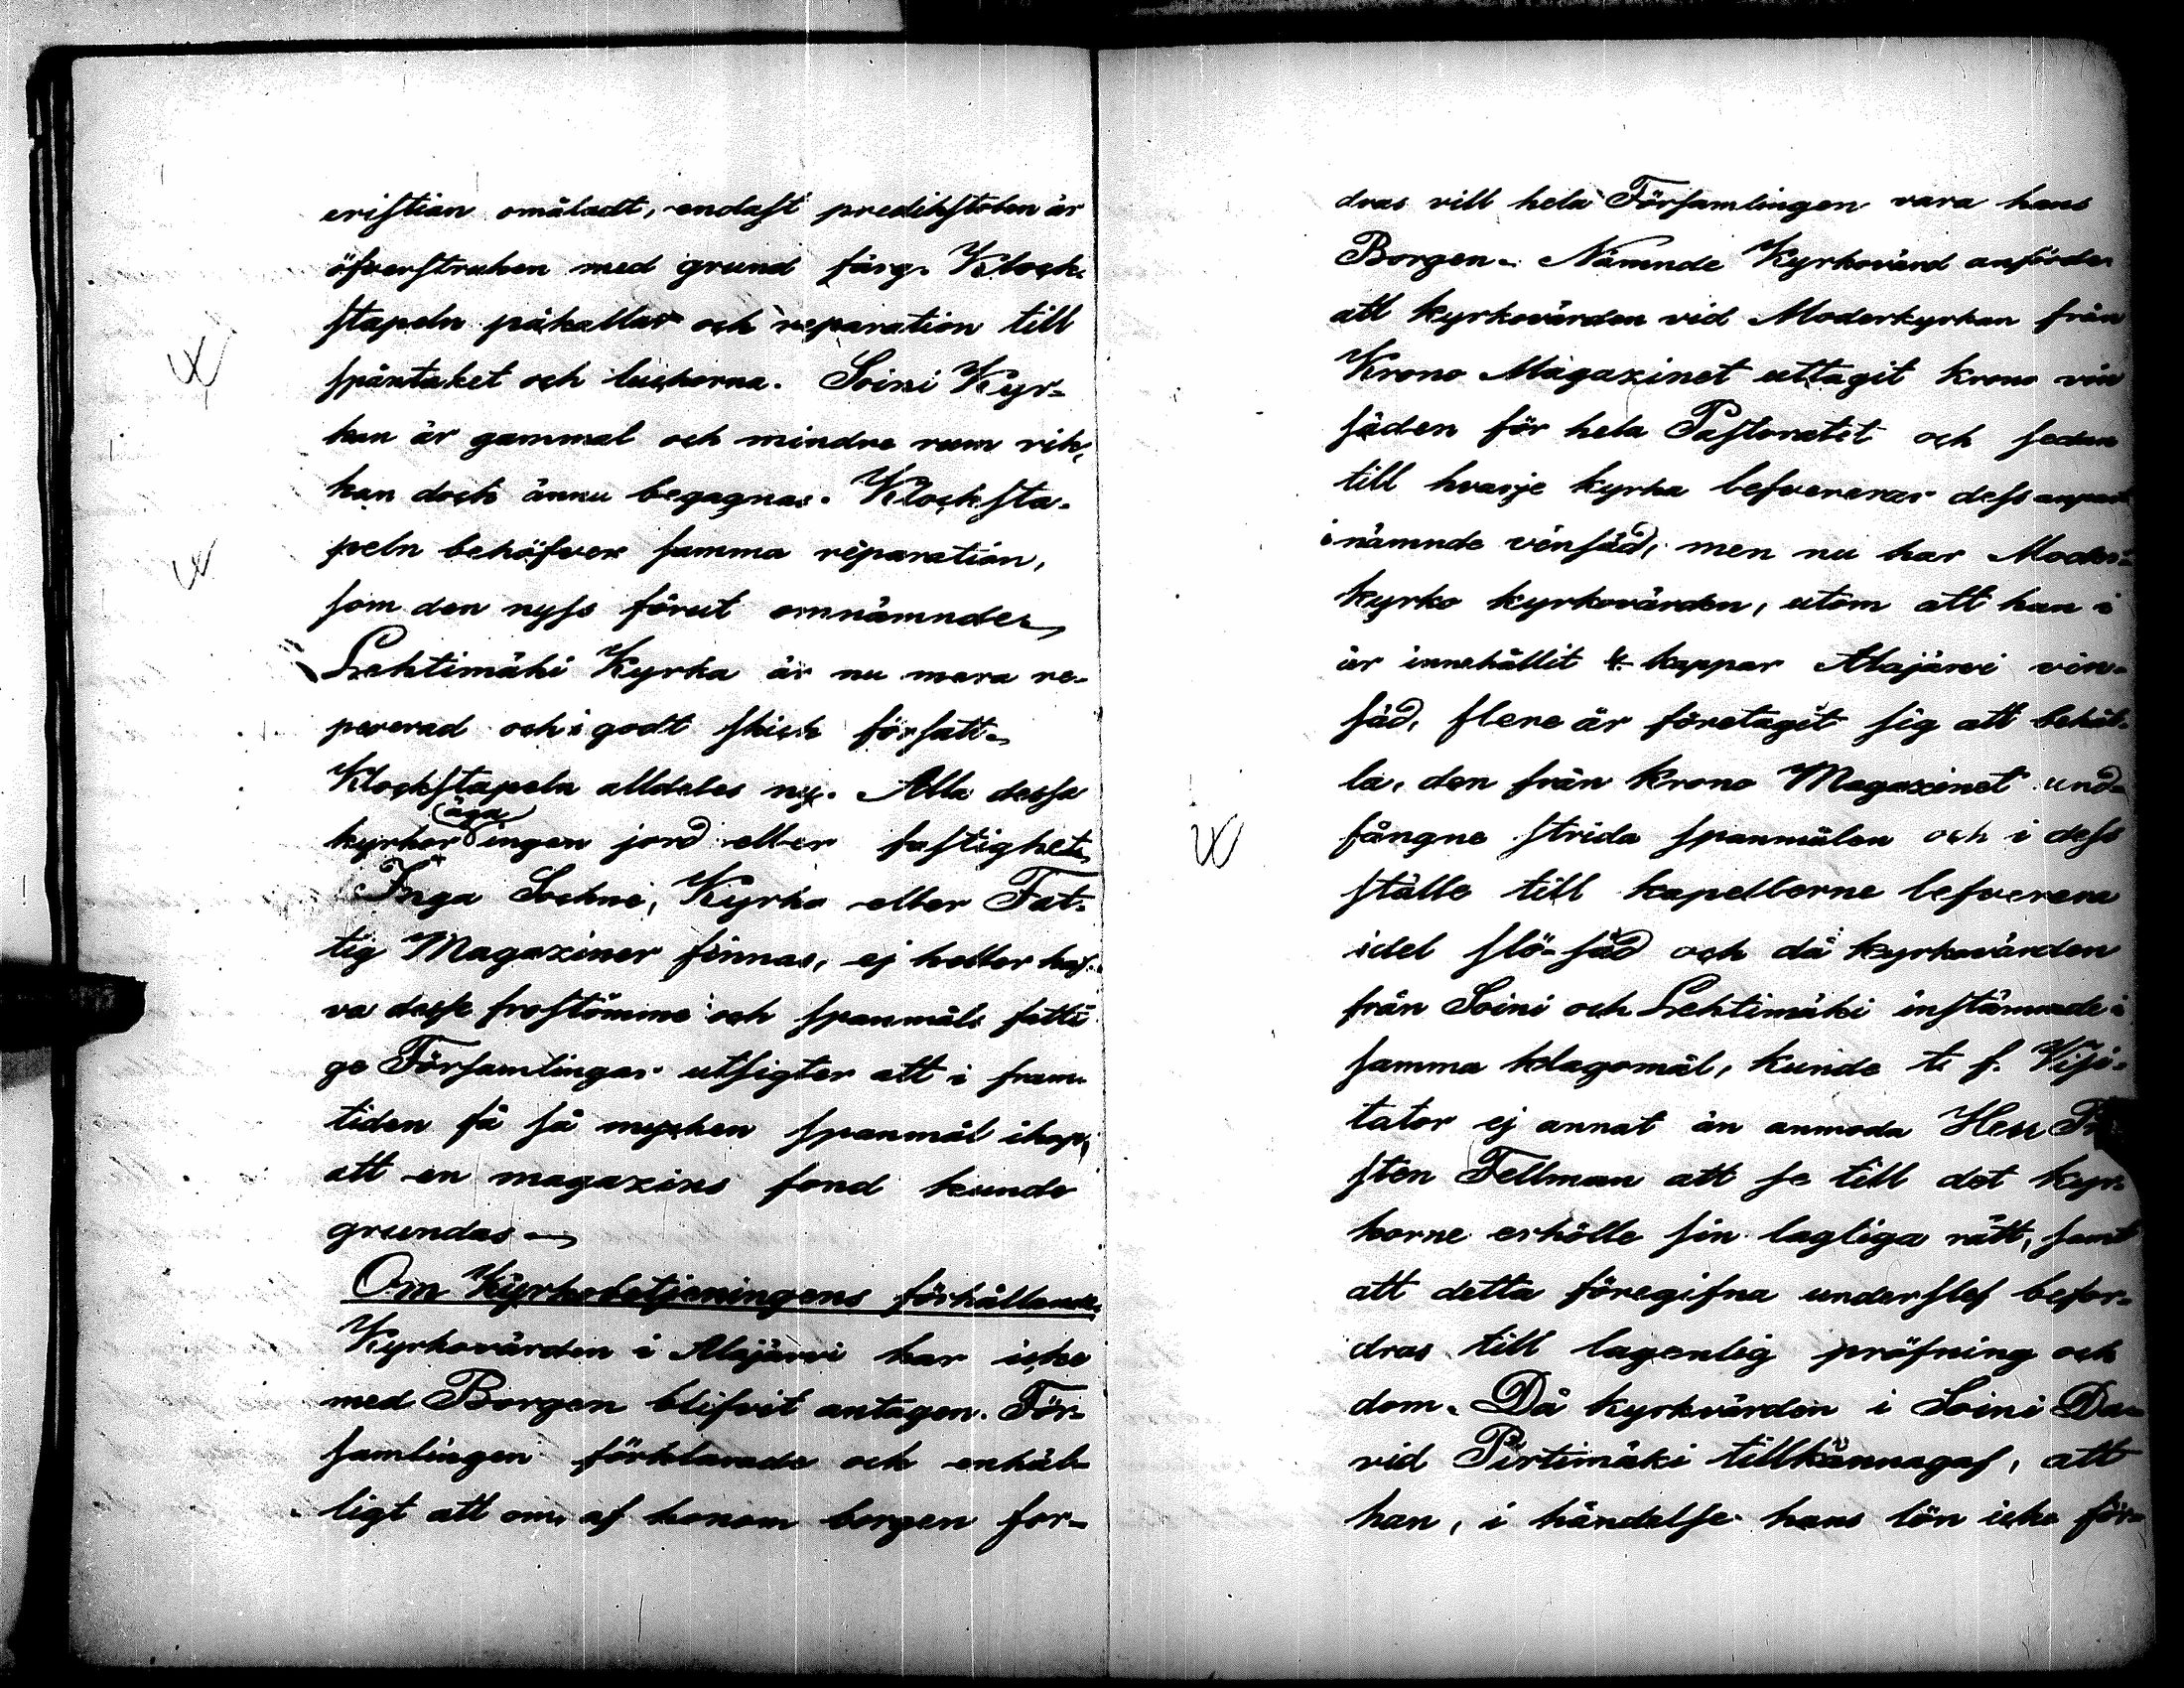 eristian omåladt, endast predikstolen är
öfverstruken med grund färg. Klock-
stapeln påkallar och reparation till
spåntaket och luckorna. Soini Kyr-
kan är gammal och mindre rum rik,
kan dock ännu begagnas. Klocksta-
peln behöfver samma reparation,
som den nyss förut omnämnde
Lehtimäki Kyrka är nu mera re-
pererad och i godt skick försatt
Klockstapeln alldeles ny. Alla dessa
kyrkor äga ingen jord eller fastighet
Inga Sockne, Kyrko eller Fat-
tig Magaziner finnas, ej heller haf-
va desse frostömme och spanmåls fatti
ge Församlingar utsigter att i fram-
tiden få så mycken spanmål ihop,
att en magazins fond kunde
grundas
Om Kyrkobetjeningens förhållande
Kyrkovärden i Alajärvi har icke
med Borgen blifvit antagen. För-
samlingen förklarade och enhäl-
ligt att om, af honom borgen for-
dras vill hela Församlingen vara hans
Borgen. Nämnde Kyrkovärd anförde
att kyrkovärden vid Moderkyrkan från
Krono Magazinet uttagit krono vin
säden för hela Pastoratet och sedan
till hvarje kyrka lefvererar dess
i nämnde vinsäd, men nu har Moder-
kyrko kyrkovärden, utom att han i
år innehållit 4 kappar Alajärvi vin-
säd, flere år företagit sig att behål-
la, den från Krono Magazinet und-
fångne strida spanmålen och i dess
ställe till kapellerne lefverera
idel slö-säd och då kyrkovärden
från Soini och Lehtimäki instämmade i
samma klagomål, kunde t. f. Visi-
tator ej annat än anmoda Herr
sten Fellman att se till det kyr-
korne erhölle sin lagliga rätt, samt
att detta föregifna underslef befor-
dras till lagenlig pröfning och
dom. Då kyrkvärden i Soini Da-
vid Pirtimäki tillkännagaf, att
han, i händelse hans lön icke för-